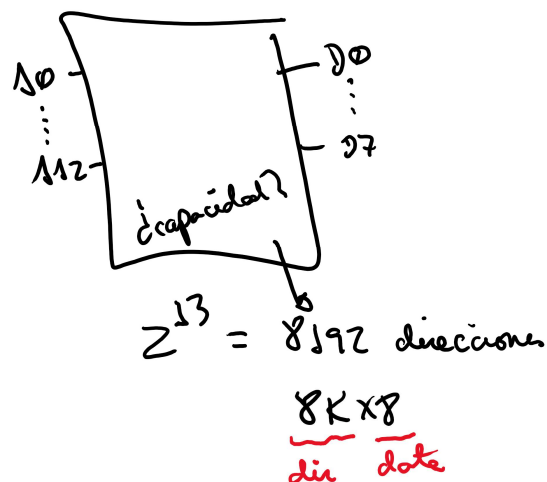 A0 D0
A12 D7
¿capacidad?
2^13 = 8192 direcciones
8K x 8
dir dato